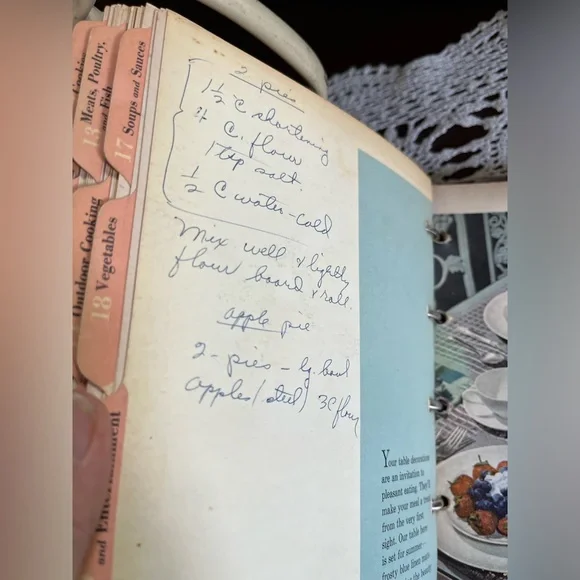 2 pies
1½ C shortening
4 C. flour
1 tsp salt.
½ C water-cold
Mix well & lightly
flour board & roll.
apple pie
2 - pies - lg. bowl
apples (steel) 3C flour
13 Meats, Poultry,
and Fish
17 Soups and Sauces
Outdoor Cooking
18 Vegetables
and Entertainment
Your table decorations
are an invitation to
pleasant eating. They'll
make your meal a treat
from the very first
sight. Our table here
is set for summer—
frosty blue linen mats